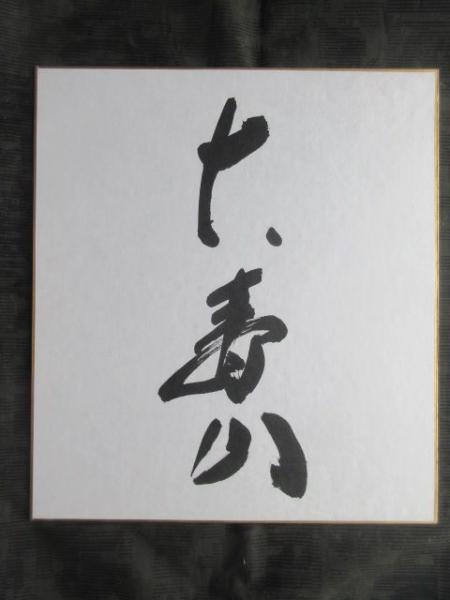 大寿山